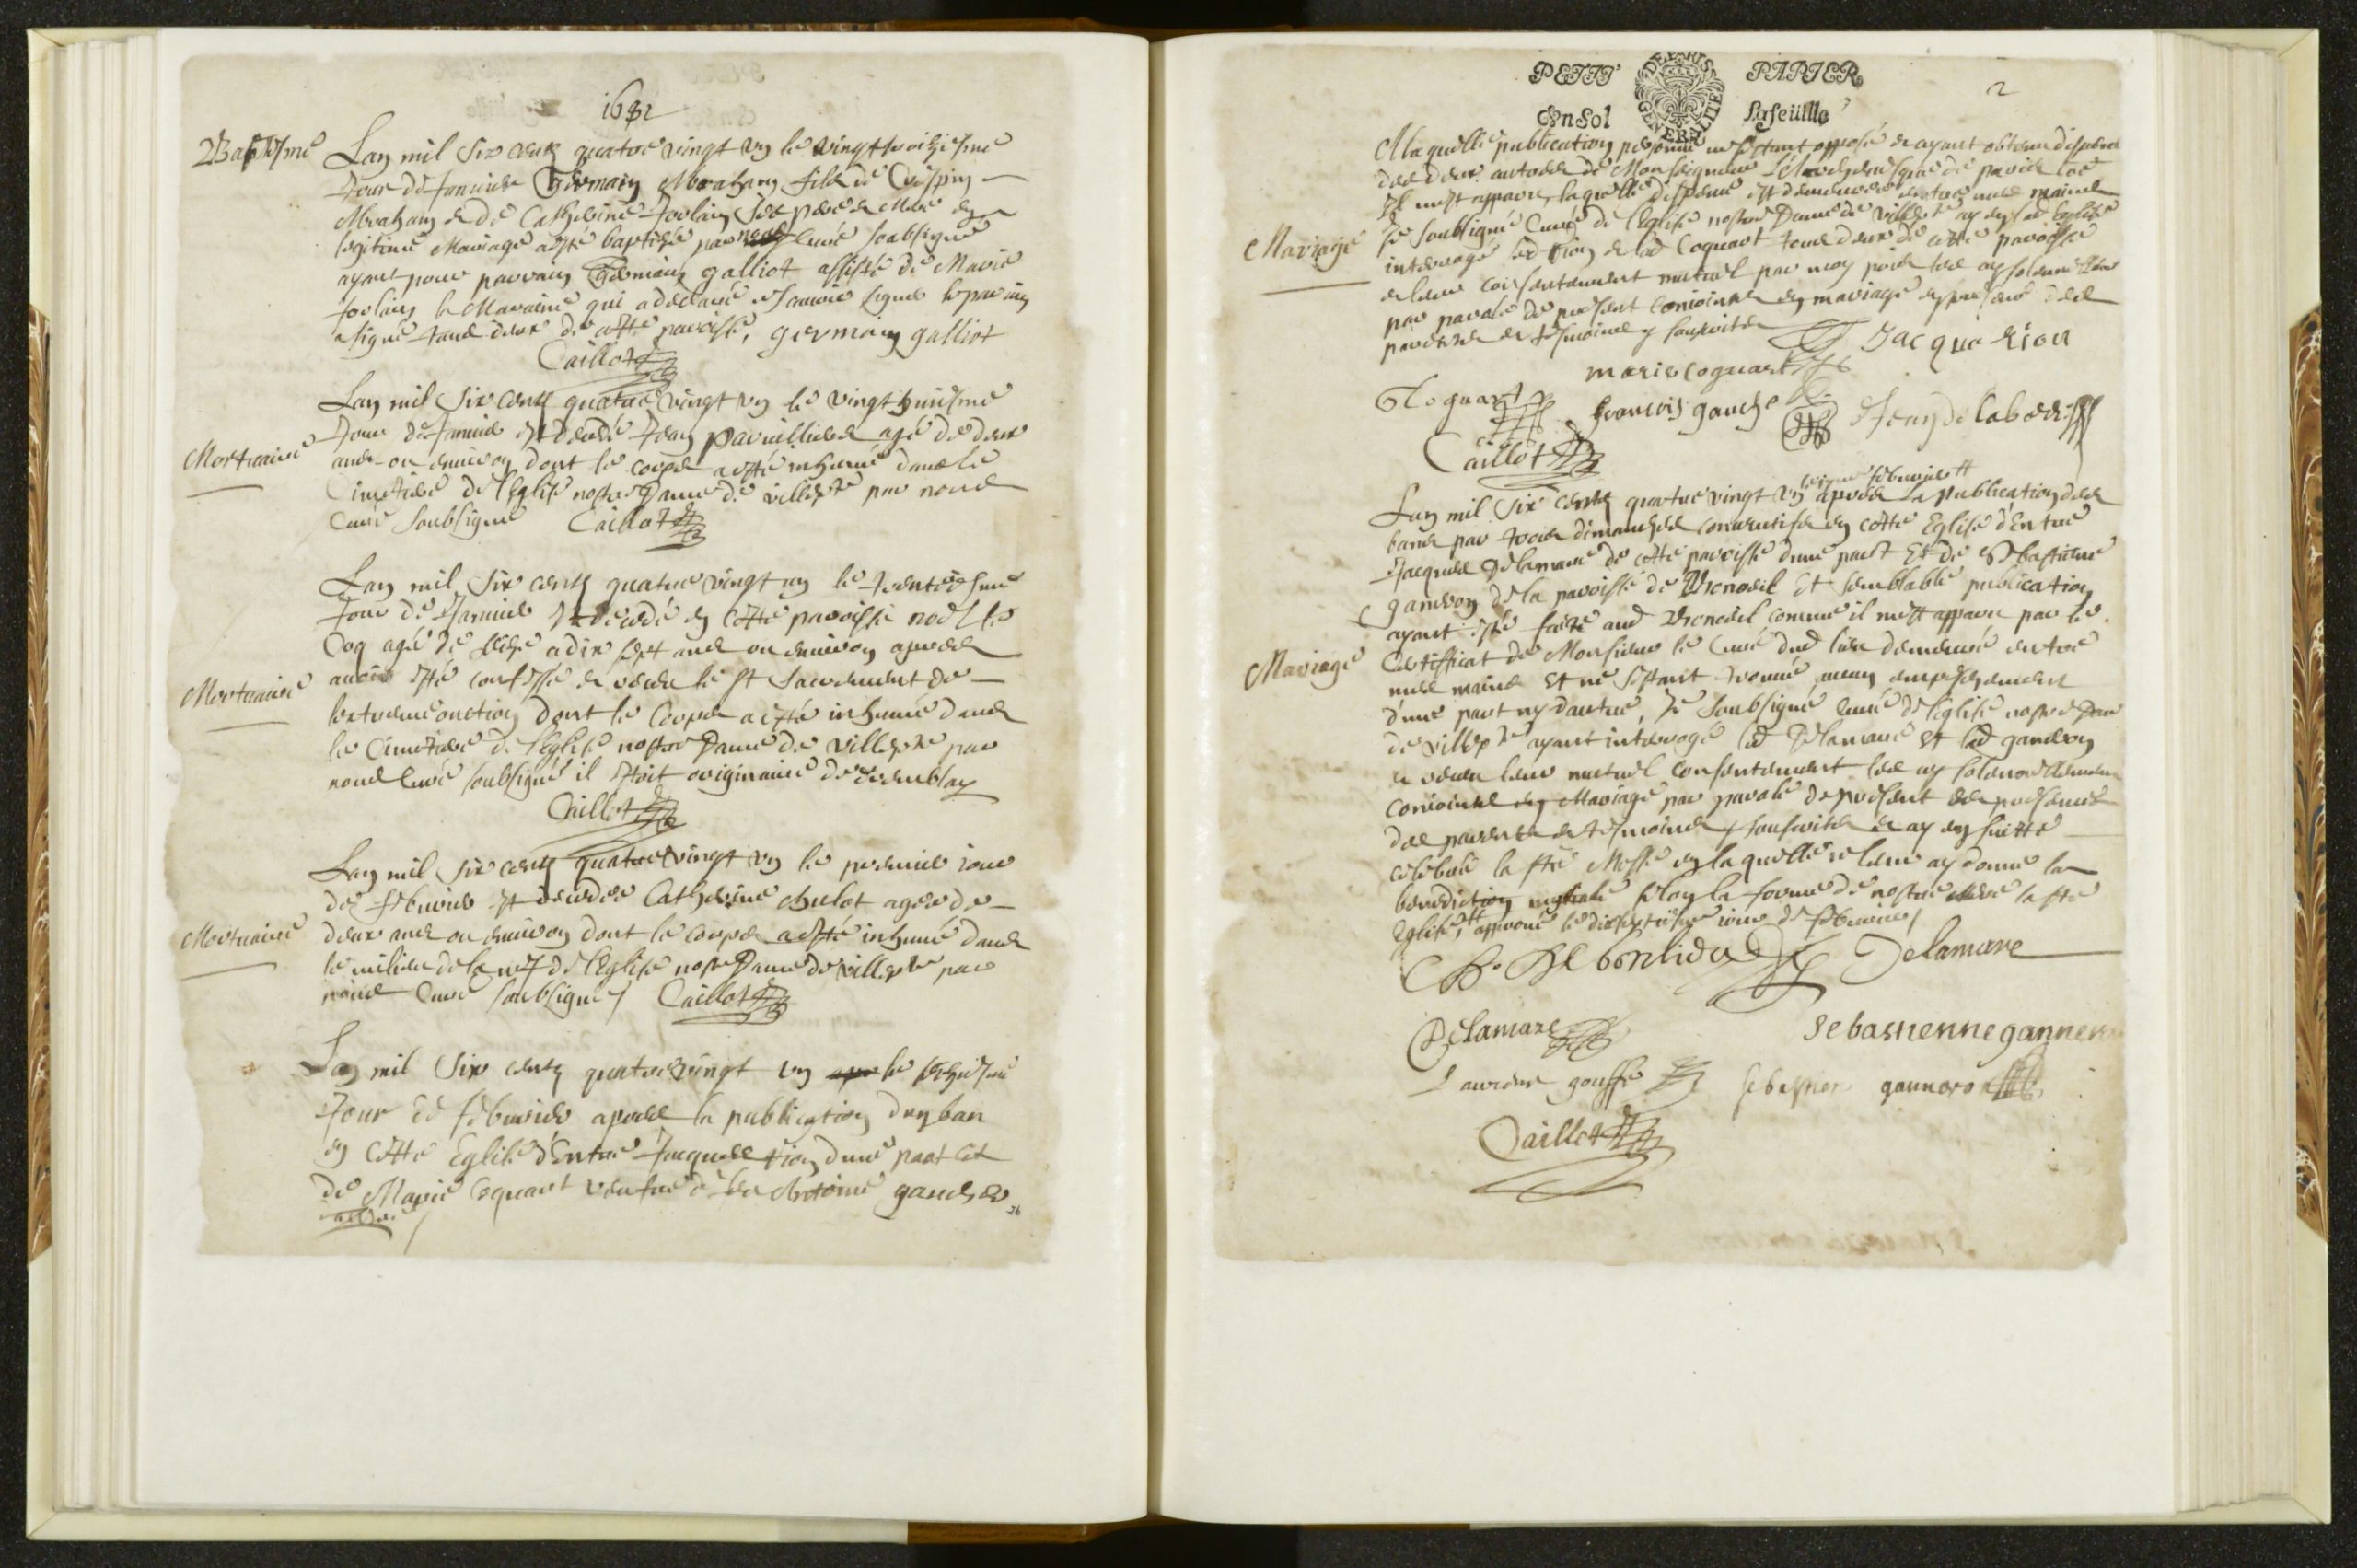 1681
Baptesme
Lan mil six cents quatre vingt un le vingt troiziesme
Jour de Januier Germain Abraham fils de Crespin
Abraham et de Catherine Joslain ses pere et Mere en
legitime Mariage a esté baptisé par nous Curé soubsigné
ayant pour parrain Germain galliot assisté de Marie
Joslain la Maraine qui a declaré ne scauoir signer le parain
a signé tous deux de cette paroisse, germain galliot
Caillot
Mortuaire
Lan mil six cents quatre vingt un le vingt huitiesme
Jour de Januier est decedé Jean pauillier agé de deux
ans ou enuiron dont le corps a esté inhumé dans le
Cimetiere de l'Eglise nostre Dame de villepte par nous
Curé soubsigné Caillot
Mortuaire
Lan mil six cents quatre vingt un le trentiesme
Jour de Januier est decedé en cette paroisse noel le
Coq agé de seize a dix sept ans ou enuiron apres
auoir esté confessé et receu le st Sacrement de
lextreme onction dont le Corps a esté inhumé dans
le Cimetiere de l'Eglise nostre Dame de villepte par
nous Curé soubsigné il estoit originaire de
Caillot
Mortuaire
Lan mil six cents quatre vingt un le premier iour
de februier est decedée Catherine agée de
deux ans ou enuiron dont le corps a esté inhumé dans
le milieu de la nef de l'Eglise nostre Dame de villepte par
nous Curé soubsigné Caillot
Lan mil six cents quatre vingt un le seiziesme
Jour de februier apres la publication d'un ban
en cette Eglise d'Entre Jacques rion d'une part et
de Marie Coquart veufue de feu Antoine gaucher
PETIT PAPIER
GENERALITE DE PARIS
Un Sol la feüille
2
Mariage
A laquelle publication personne ne sestant opposé et ayant obtenu dispence
des deux autres de Monseigneur L'Archeuesque de paris comme
Il mest apparu, laquelle dispence est demeurée entre mes mains
Je soubsigné Curé de l'Eglise nostre Dame de villepte ay en lad Eglise
interrogé led rion et lad Coquart tous deux de cette paroisse
et leur consentement mutuel par moy pris les ay solennellement
par parole de present conioints en mariage en presence des
parents et tesmoins soubscrits
Jacque Rion
marie coquart
Coquart
francois gaucher
Jean de labode
Caillot
Mariage
Lan mil six cents quatre vingt un apres la publication des
bans par trois dimanches consecutifs en cette Eglise d'Entre
Jacques Delamare de cette paroisse d'une part Et de Sebastienne
ganneron de la paroisse de Et semblable publication
ayant esté faite aud comme il mest apparu par le
Certifficat de Monsieur le Curé dud lieu demeuré entre
mes mains Et ne s'estant trouué aucun empeschement
d'une part ny d'autre, Je soubsigné Curé de l'Eglise nostre Dame
de villepte ayant interrogé led Delamare et lad ganneron
et receu leur mutuel consentement les ay solennellement
conioints en Mariage par parole de present en presence
des parents et tesmoins soubscrits et ay en suitte
celebré la ste Messe en laquelle ie leur ay donné la
benediction nuptiale selon la forme de nostre mere la ste
Eglise, approuué le iour de februier
Delamare
Delamare
Sebastienne ganneron
Laurens gouffé
sebastien ganneron
Caillot